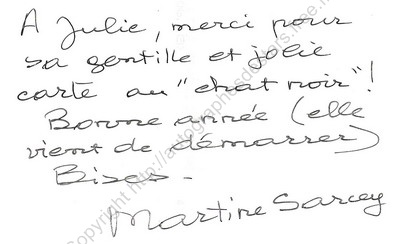 A Julie, merci pour
sa gentille et jolie
carte au "chat noir"!
Bonne année (elle
vient de démarrer)
Bises -
Martine Sarcey
Copyright http://autographesdestars.free.fr